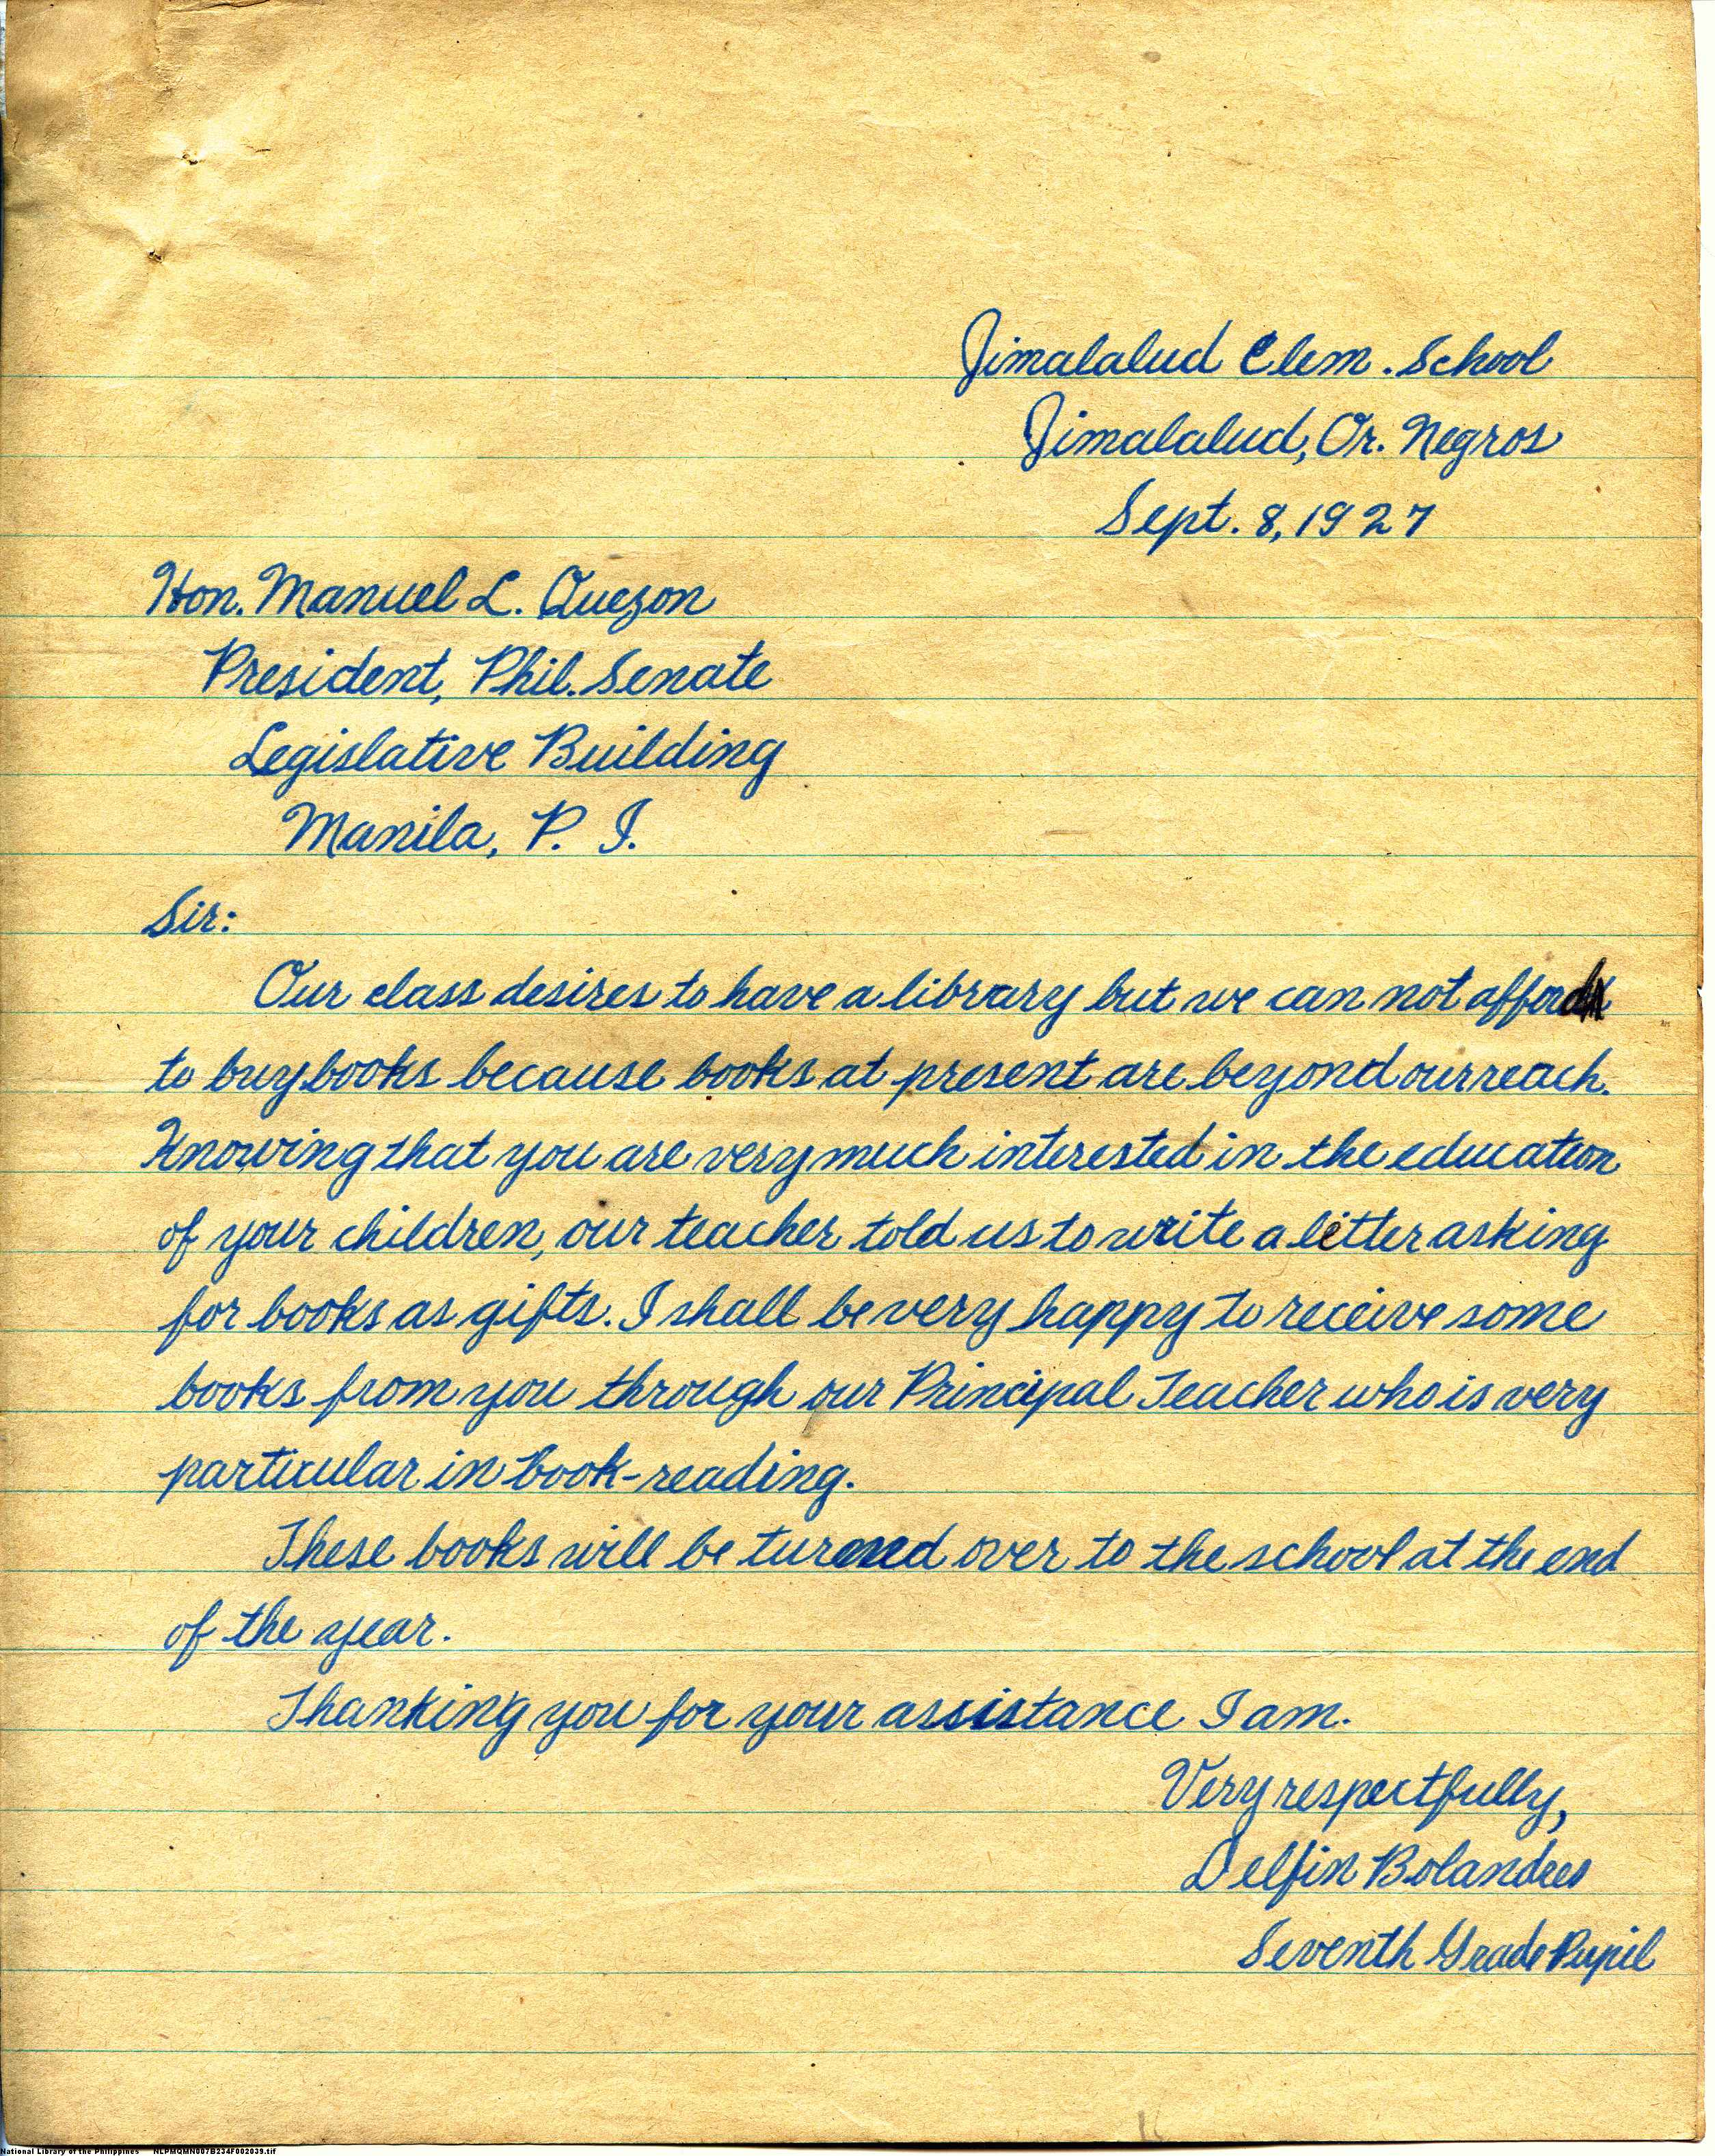 Jimalalud Elem. School
Jimalalud, Or. Negros
Sept. 8, 1927
Hon. Manuel L. Quezon
President, Phil. Senate
Legislative Building
Manila, P. I.
Sir:
Our class desires to have a library but we can not afford
to buy books because books at present are beyond our reach.
Knowing that you are very much interested in the education
of your children, our teacher told us to write a letter asking
for books as gifts. I shall be very happy to receive some
books from you through our Principal Teacher who is very
particular in book-reading.
These books will be turned over to the school at the end
of the year.
Thanking you for your assistance I am.
Very respectfully,
Delfin Bolandres
Seventh Grade Pupil
National Library of the Philippines NLPMQMN007B234F002039.tif